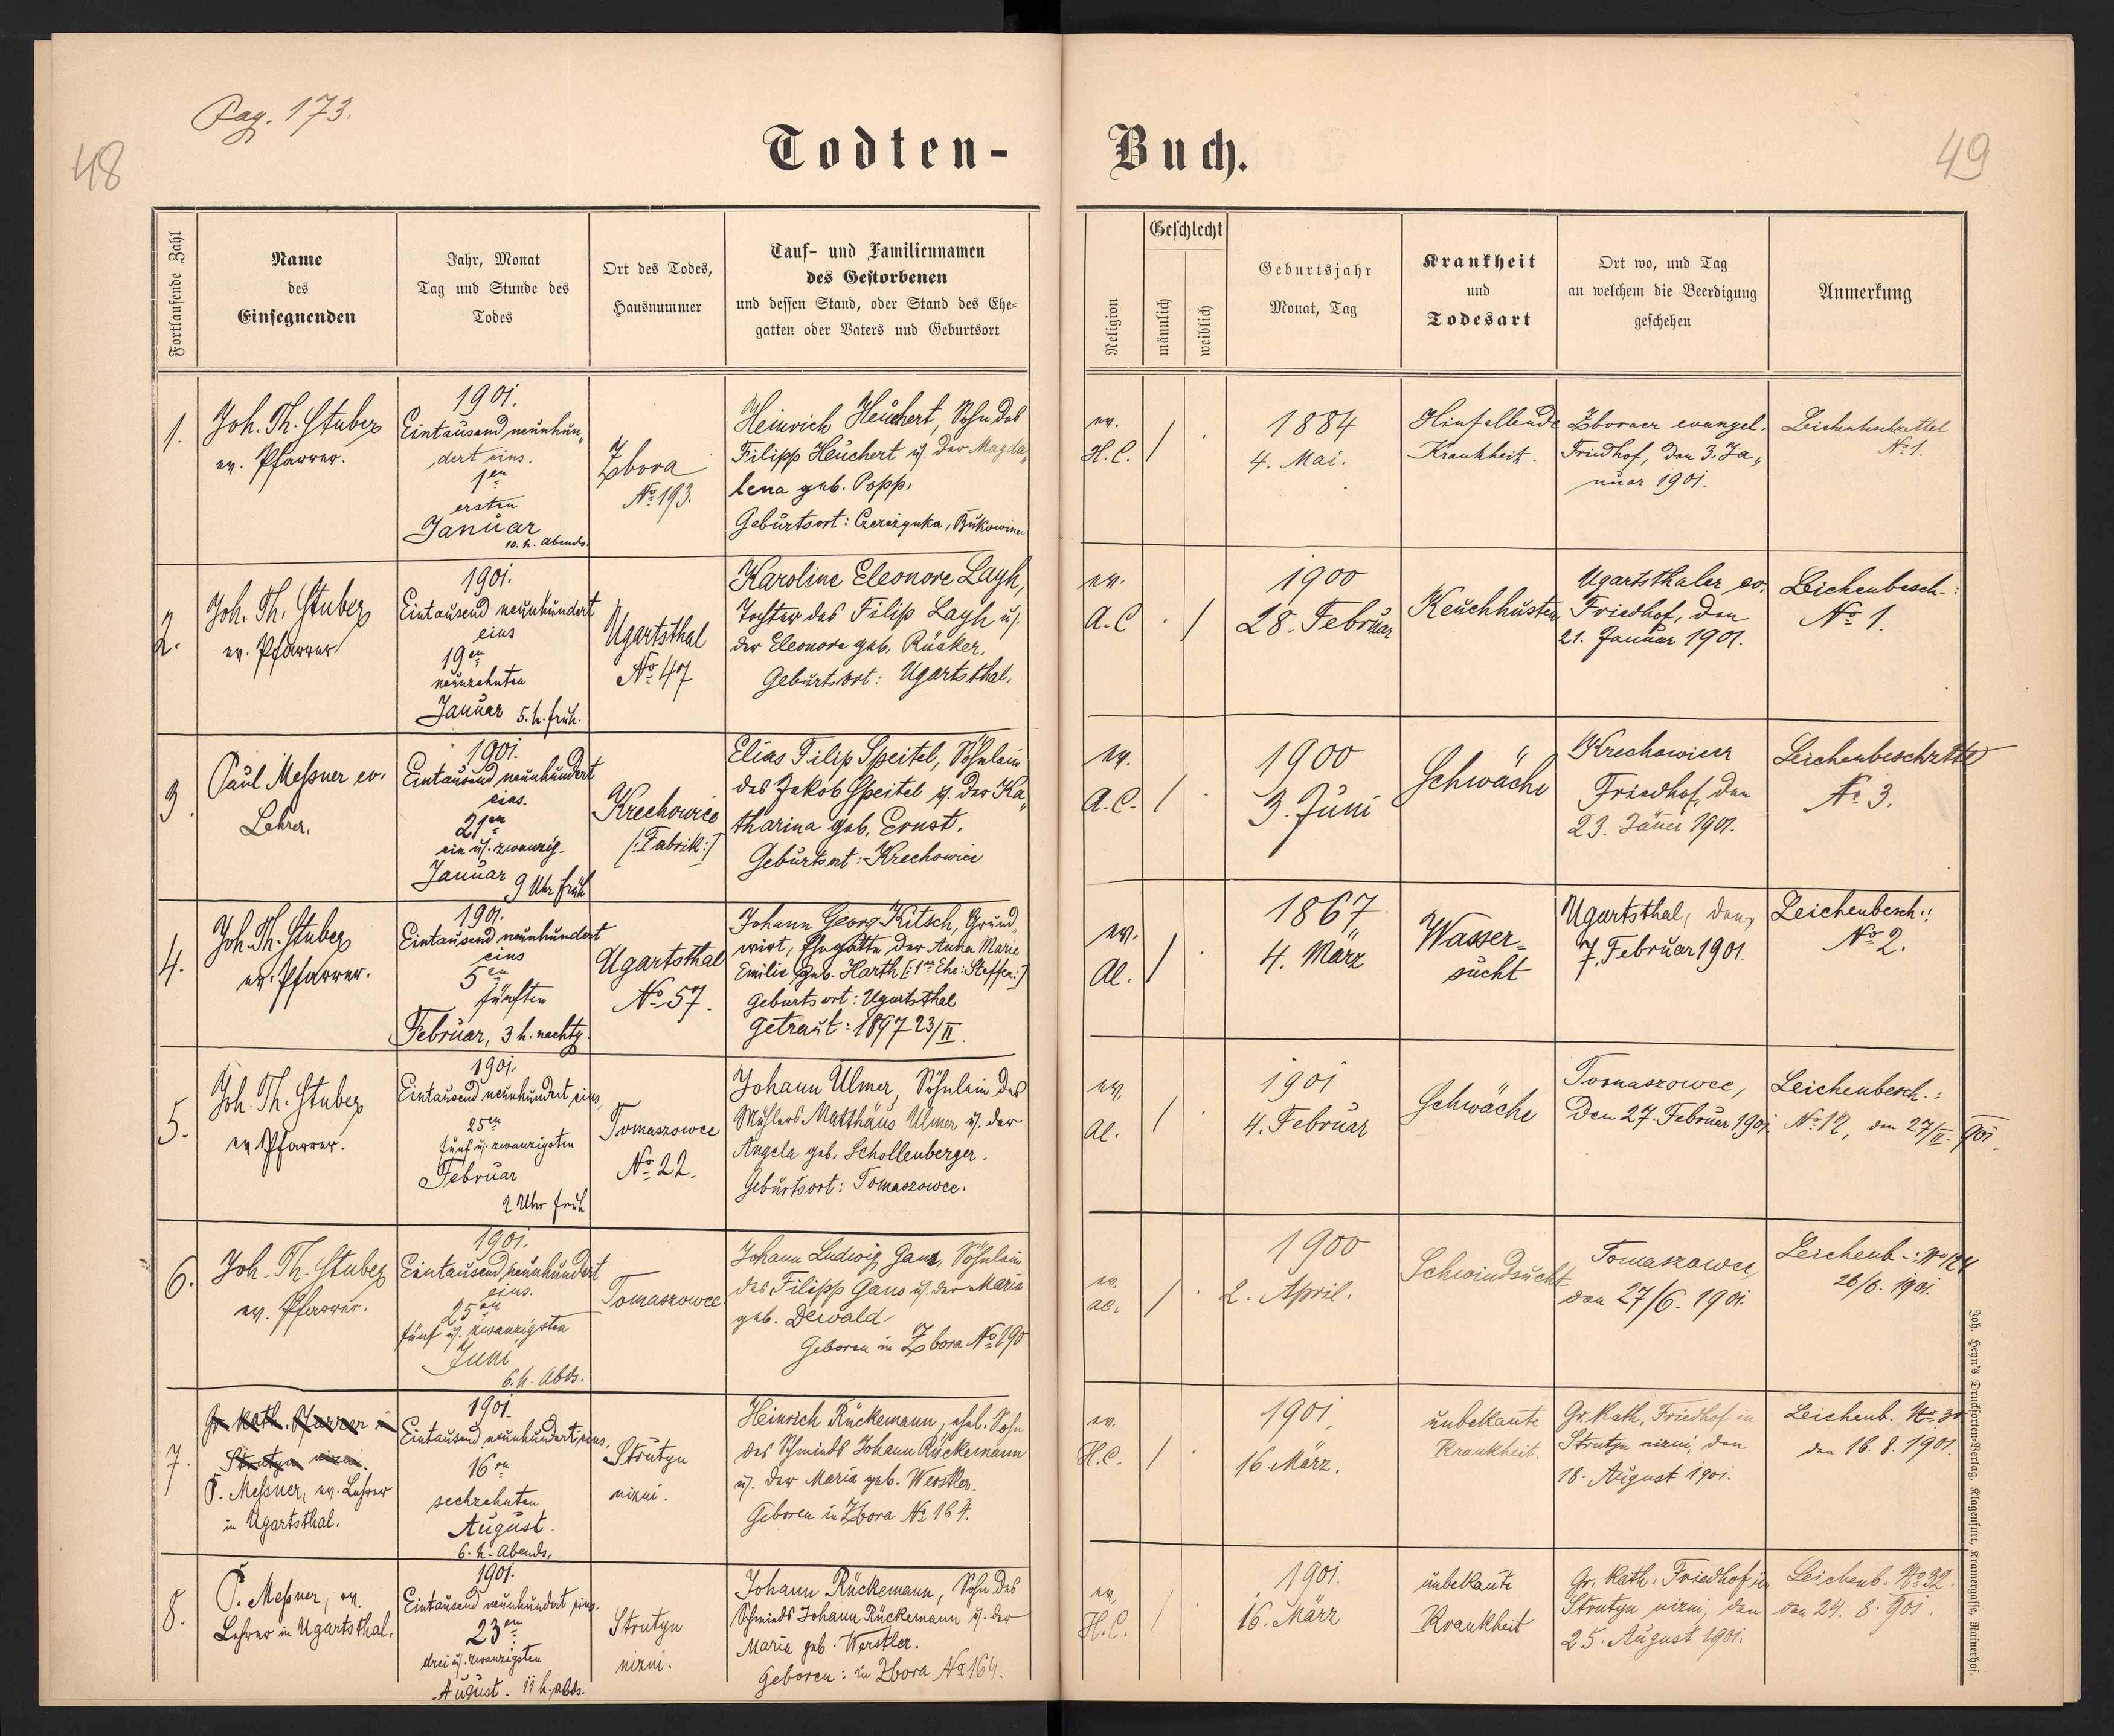 Pag. 173.
48
49
Todten-Buch.
Fortlaufende Zahl
Name
des
Einsegnenden
Jahr, Monat
Tag und Stunde des
Todes
Ort des Todes,
Hausnummer
Tauf- und Familiennamen
des Gestorbenen
und dessen Stand, oder Stand des Ehe-
gatten oder Vaters und Geburtsort
Religion
Geschlecht
männlich
weiblich
Geburtsjahr
Monat, Tag
Krankheit
und
Todesart
Ort wo, und Tag
an welchem die Beerdigung
geschehen
Anmerkung
1.
Joh. Th. Stuber
ev. Pfarrer.
1901.
Eintausend neunhun„
dert eins.
1en
ersten
Januar
10. h. abends.
Zbora
No 193.
Heinrich Heuchert, Sohn des
Filipp Heuchert u. der Magda„
lena geb. Popp,
Geburtsort: Bukowina
ev.
H.C.
/ .
1884
4. Mai.
Hinfallende
Krankheit.
Zboraer evangel.
Friedhof, den 3. Ja„
nuar 1901.
Leichenbeschzettel
No 1.
2.
Joh. Th. Stuber
ev. Pfarrer
1901.
Eintausend neunhundert
eins
19en
neunzehnten
Januar 5. h. früh.
Ugartsthal
No 47
Karoline Eleonore Layh,
Tochter des Filip Layh u.
der Eleonore geb. Rüsker,
Geburtsort: Ugartsthal.
ev.
A.C
. /
1900
28. Februar
Keuchhusten
Ugartsthaler ev.
Friedhof, den
21. Januar 1901.
Leichenbesch.:
No 1.
3.
Paul Meßner ev.
Lehrer.
1901.
Eintausend neunhundert
eins.
21en
ein u. zwanzig-
Januar 9 Uhr früh
Krechowice
/:Fabrik:/
Elias Filip Speitel, Söhnlein
des Jakob Speitel u. der Ka„
tharina geb. Ernst.
Geburtsort: Krechowice
ev.
A.C.
/ .
1900
3. Juni
Schwäche
Krechowicer
Friedhof, den
23. Jäner 1901.
Leichenbeschzettel
No 3.
4.
Joh. Th. Stuber
ev. Pfarrer.
1901.
Eintausend neunhundert
eins
5en
fünften
Februar, 3 h. nachtg.
Ugartsthal
No 57.
Johann Georg Kitsch, Grund„
wirt, Ehegatte der Anna Marie
Emilie geb. Harth /:1te Ehe: Steffen:/
Geburtsort: Ugartsthal
Getraut: 1897 23/II.
ev.
Al.
/ .
1867
4. März
Wasser-
sucht
Ugartsthal, den
7. Februar 1901.
Leichenbesch.:
No 2.
5.
Joh. Th. Stuber
ev. Pfarrer.
1901.
Eintausend neunhundert eins.
25en
fünf u. zwanzigsten
Februar
2 Uhr früh
Tomaszowce
No 22.
Johann Ulmer, Söhnlein des
Mühlers Matthäus Ulmer u. der
Angela geb. Schollenberger.
Geburtsort: Tomaszowce.
ev.
Al.
/ .
1901
4. Februar
Schwäche
Tomaszowce,
den 27. Februar 1901.
Leichenbesch.:
No 12, den 27/II. 901.
6.
Joh. Th. Stuber
ev. Pfarrer.
1901.
Eintausend neunhundert
eins.
25en
fünf u. zwanzigsten
Juni
6. h. Abds.
Tomaszowce
Johann Ludwig Gans, Söhnlein
des Filipp Gans u. der Maria
geb. Dewald.
Geboren in Zbora No 190
ev.
ac.
/ .
1900
2. April.
Schwindsucht
Tomaszowce,
den 27/6. 1901.
Leichenb.:
26/6. 1901.
7.
Gr. Kath. Pfarrer in
Strutyn nizni.
P. Meßner, ev. Lehrer
in Ugartsthal.
1901.
Eintausend neunhundert eins.
16en
sechzehnten
August.
6. h. Abends.
Strutyn
nizni.
Heinrich Rückemann, ehel. Sohn
des Schmieds Johann Rückemann
u. der Maria geb. Werstler.
Geboren in Zbora No 164.
ev.
H.C.
/ .
1901.
16 März.
unbekante
Krankheit.
Gr. Kath. Friedhof in
Strutyn nizni, den
18. August 1901.
Leichenb. No 30
den 16. 8. 1901.
8.
P. Meßner, ev.
Lehrer in Ugartsthal.
1901.
Eintausend neunhundert eins.
23en
drei u. zwanzigsten
August. 11 h. abds.
Strutyn
nizni.
Johann Rückemann, Sohn des
Schmieds Johann Rückemann u. der
Maria geb. Werstler.
Geboren: in Zbora No 164.
ev.
H.C.
/ .
1901.
16. März
unbekante
Krankheit
Gr. Kath. Friedhof in
Strutyn nizni, den
25. August 1901.
Leichenb. No 32.
den 24. 8. 901.
Joh. Heyn's Drucksorten-Verlag, Klagenfurt, Kramergasse, Rainerhof.